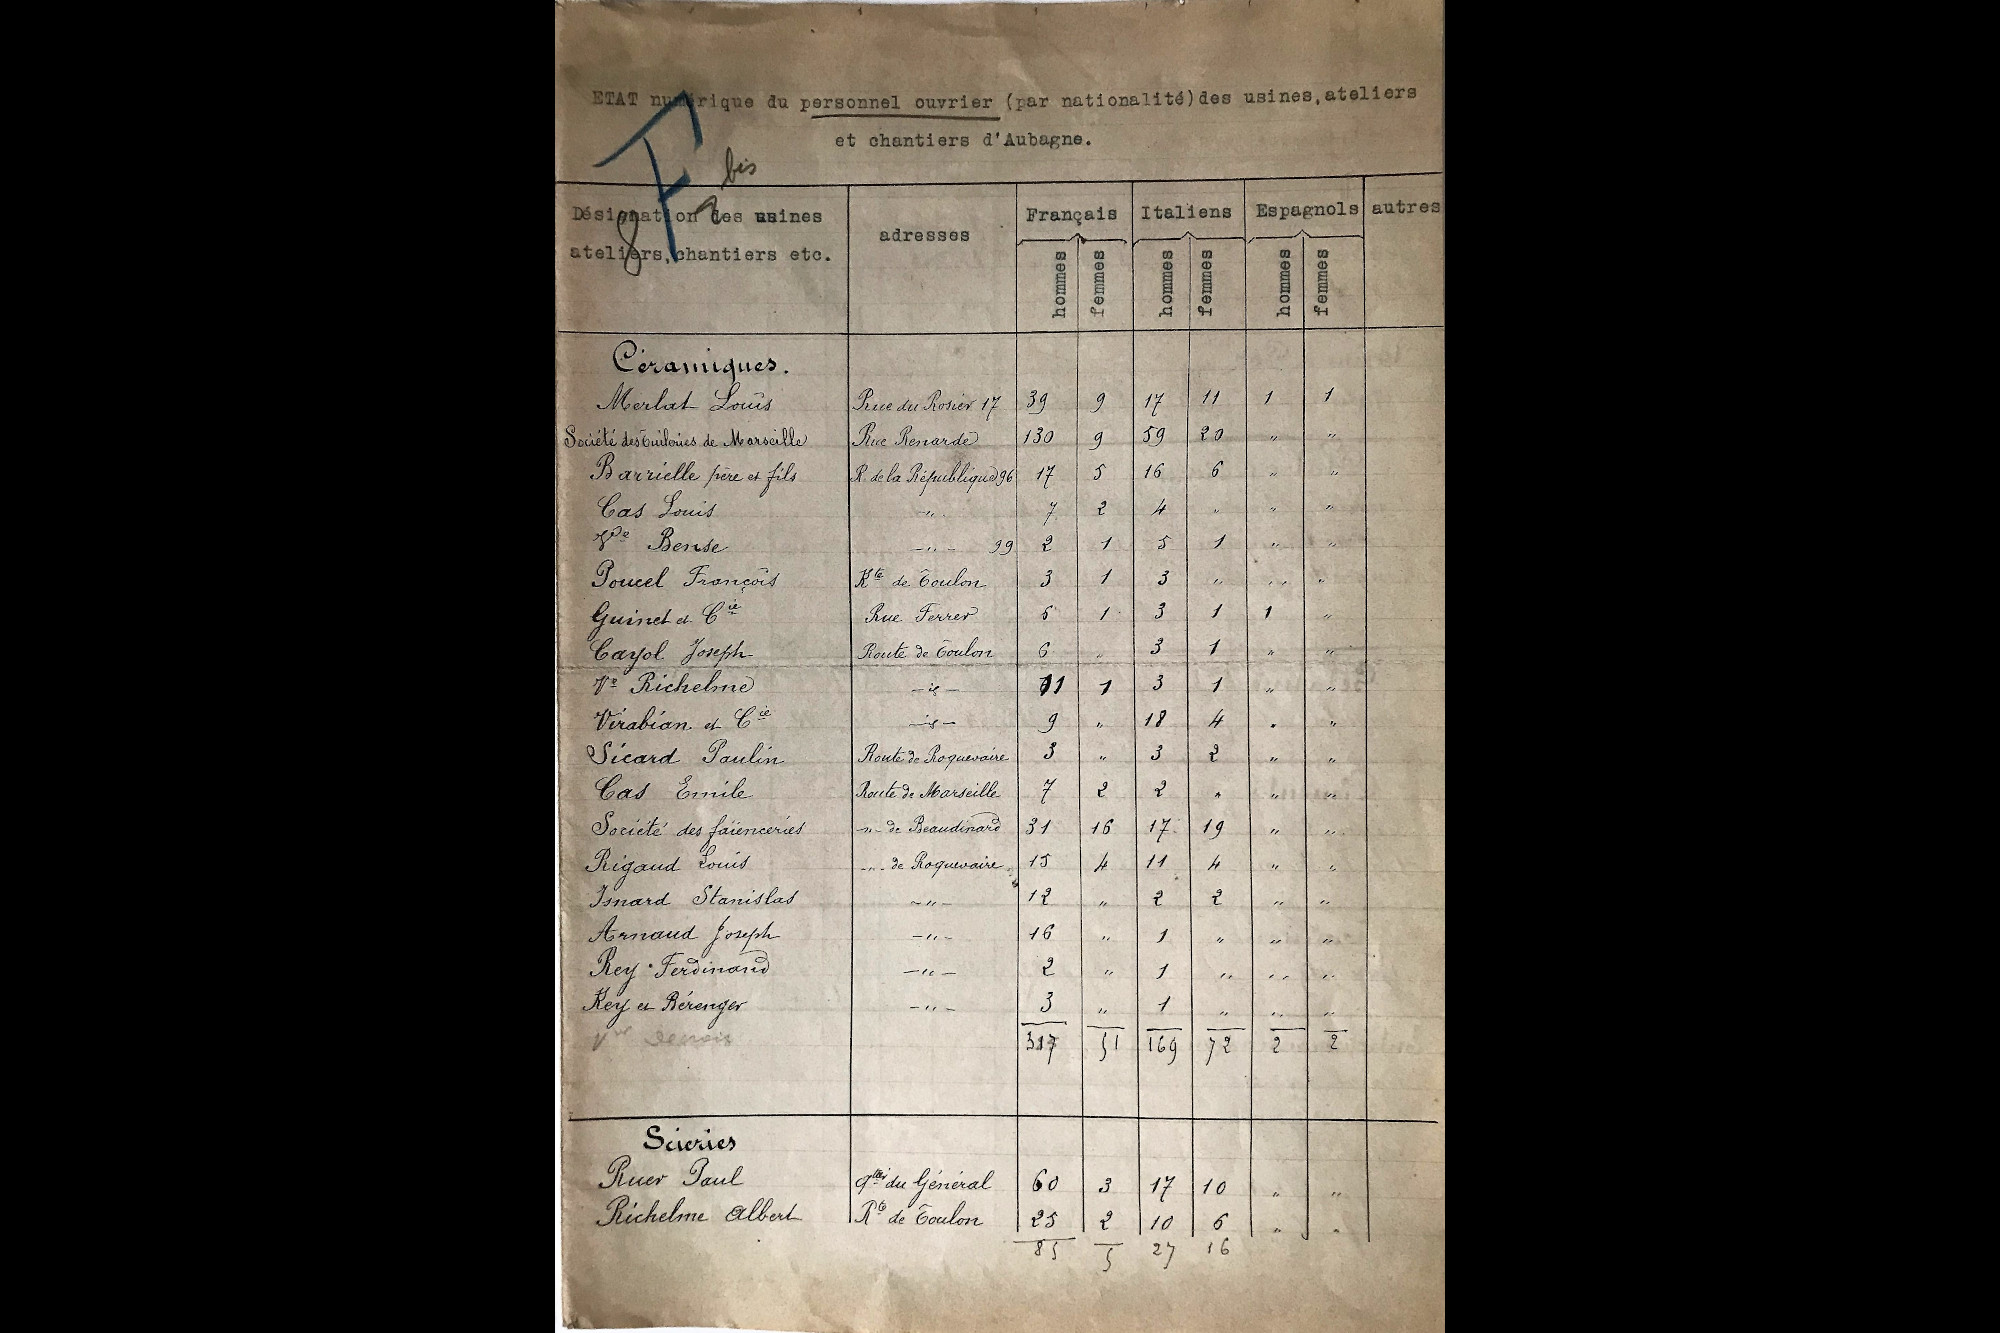 ETAT numérique du personnel ouvrier (par nationalité) des usines, ateliers
et chantiers d'Aubagne.
8 F 2 bis
Désignation des usines ateliers, chantiers etc. adresses Français Italiens Espagnols autres
hommes femmes hommes femmes hommes femmes
Céramiques.
Merlat Louis Rue du Rosier 17 39 9 17 11 1 1
Société des Tuileries de Marseille Rue Renarde 130 9 59 20 " "
Barrielle père et fils R. de la République 96 17 5 16 6 " "
Cas Louis -"- 7 2 4 " " "
Vve Bense -"- 99 2 1 5 1 " "
Poucel François Rte de Toulon 3 1 3 " " "
Guinet et Cie Rue Ferrer 6 1 3 1 1 "
Cayol Joseph Route de Toulon 6 " 3 1 " "
Ve Richelme -id- 11 1 3 1 " "
Virabian et Cie -id- 9 " 18 4 " "
Sicard Paulin Route de Roquevaire 3 " 3 2 " "
Cas Emile Route de Marseille 7 2 2 " " "
Société des faïenceries -"- de Beaudinard 31 16 17 19 " "
Rigaud Louis -"- de Roquevaire 15 4 11 4 " "
Isnard Stanislas -"- 12 " 2 2 " "
Arnaud Joseph -"- 16 " 1 " " "
Rey Ferdinand -"- 2 " 1 " " "
Rey et Bérenger -"- 3 " 1 " " "
317 51 169 72 2 2
Scieries
Ruer Paul qtier du Général 60 3 17 10 " "
Richelme Albert Rte de Toulon 25 2 10 6 " "
85 5 27 16